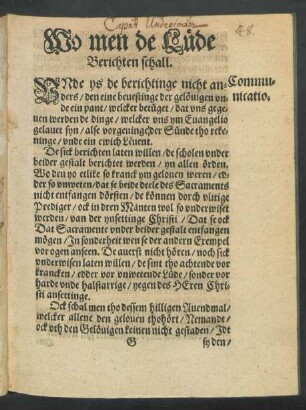 Wo men de Lüde
Berichten schall.
VNde ys de berichtinge nicht an-
ders / den eine bouestinge der gelöuigen vn-
de ein pant / welcker betüget / dat vns gege-
uen werden de dinge / welcker vns ym Euangelio
gelauet syn / alse vorgeuinge der Sünde tho reke-
ninge / vnde ein ewich Leuent.
De sick berichten laten willen / de scholen vnder
beider gestalt berichtet werden / yn allen örden.
Wo den yo etlike so kranck ym gelouen weren / ed-
der so vnweten / dat se beide deele des Sacraments
nicht entfangen dörsten / de können dorch vlitige
Prediger / ock in dren Mänten wol so vnderwiset
werden / van der ynsettinge Christi / Dat se ock
Dat Sacramente vnder beider gestalt entfangen
mögen / Jn sonderheit wen se der andern Exempel
vor ogen ansehen. De auerst nicht hören / noch sick
vnderwisen laten willen / de sint tho achtende vor
krancken / edder vor vnwetende Lüde / sonder vor
hardt vnde halsstarrige / yegen des HEren Chri-
sti ansettinge.
Ock schal men tho dessem hilligen Auendmal /
welcker allene den gelouen thohört / Nemande /
ock vth den Gelöuigen keinen nicht gestaden / Jdt
G sy den /
Commu-
nicatio.